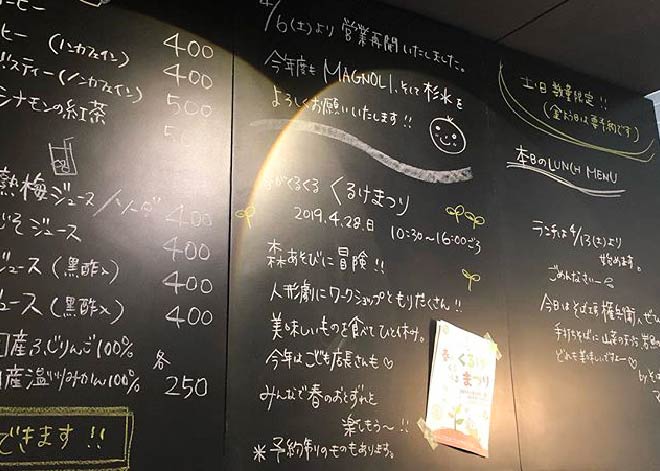 ーヒー
ーヒー（ノンカフェイン） 400
ズティー（ノンカフェイン） 400
シナモンの紅茶 500
熟梅ジュース／ソーダ 400
じそジュース 400
ジュース（黒酢入） 400
ュース（黒酢入） 400
産ふじりんご100%
産温州みかん100% 各 250
できます!!
4/6(土)より営業再開いたしました。
今年度もMAGNOLI、そして杉氷を
よろしくお願いいたします!!
ながくるぐる くるけまつり
2019.4.28.日 10:30〜16:00ごろ
森あそびに冒険!!
人形劇にワークショップともりだくさん!!
美味しいものを食べてひと休み。
今年はこども店長さんも♡
みんなで春のおとずれを
楽しもう〜!!
※予約制りのものもあります。
春
くるけ
まつり
土日数量限定!!
(金よう日は要予約です)
本日のLUNCH MENU
ランチは4/13(土)より
始めます。
ごめんなさい
今日はそば工房 権兵衛へぜひ
手打ちそばに山菜の天ぷら
どれも美味しいですよー♡